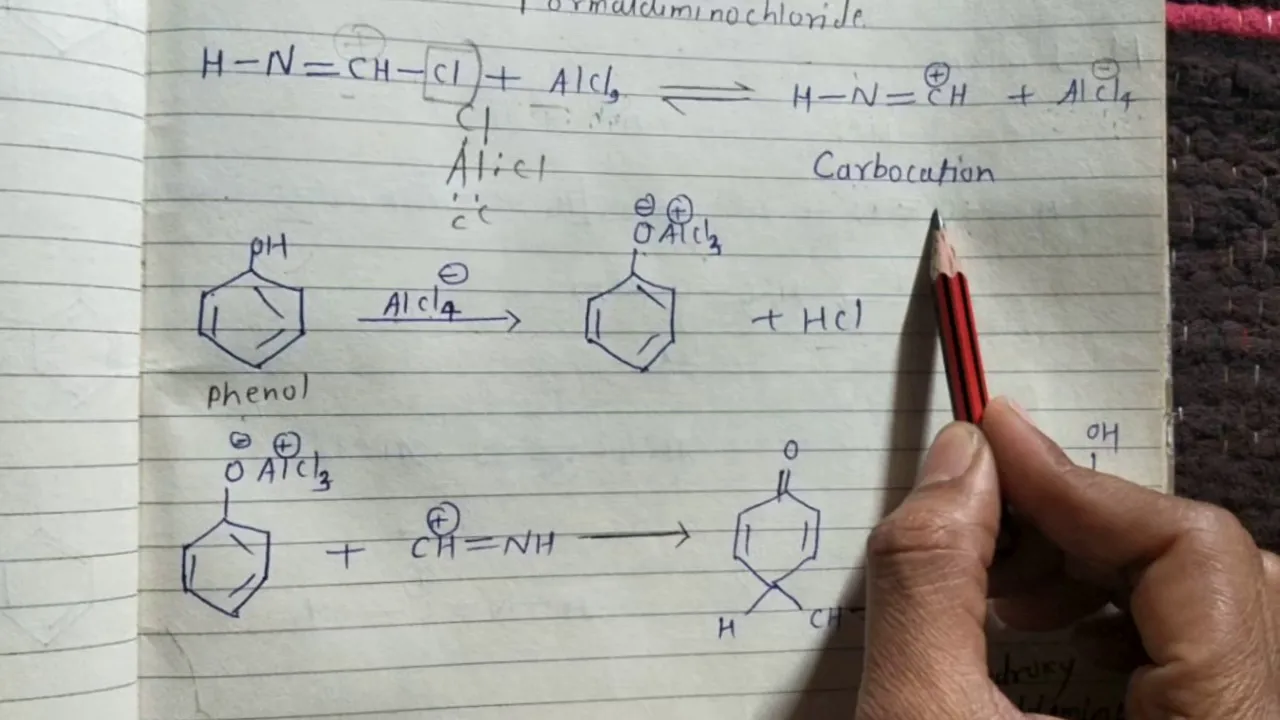 Formaldiminochloride
H-N=CH-Cl + AlCl3 ⇌ H-N=CH⊕ + AlCl4⊖
Cl
Al:Cl
Carbocation
OH
O⊖ AlCl3⊕
AlCl4⊖
+ HCl
phenol
O⊖ AlCl3⊕ + CH⊕=NH →
O
H
CH-
OH